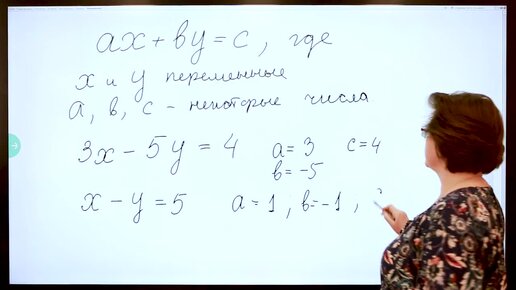 ax + by = c, где
x и y переменные
a, b, c - некоторые числа
3x - 5y = 4 a = 3 c = 4
b = -5
x - y = 5 a = 1, b = -1,